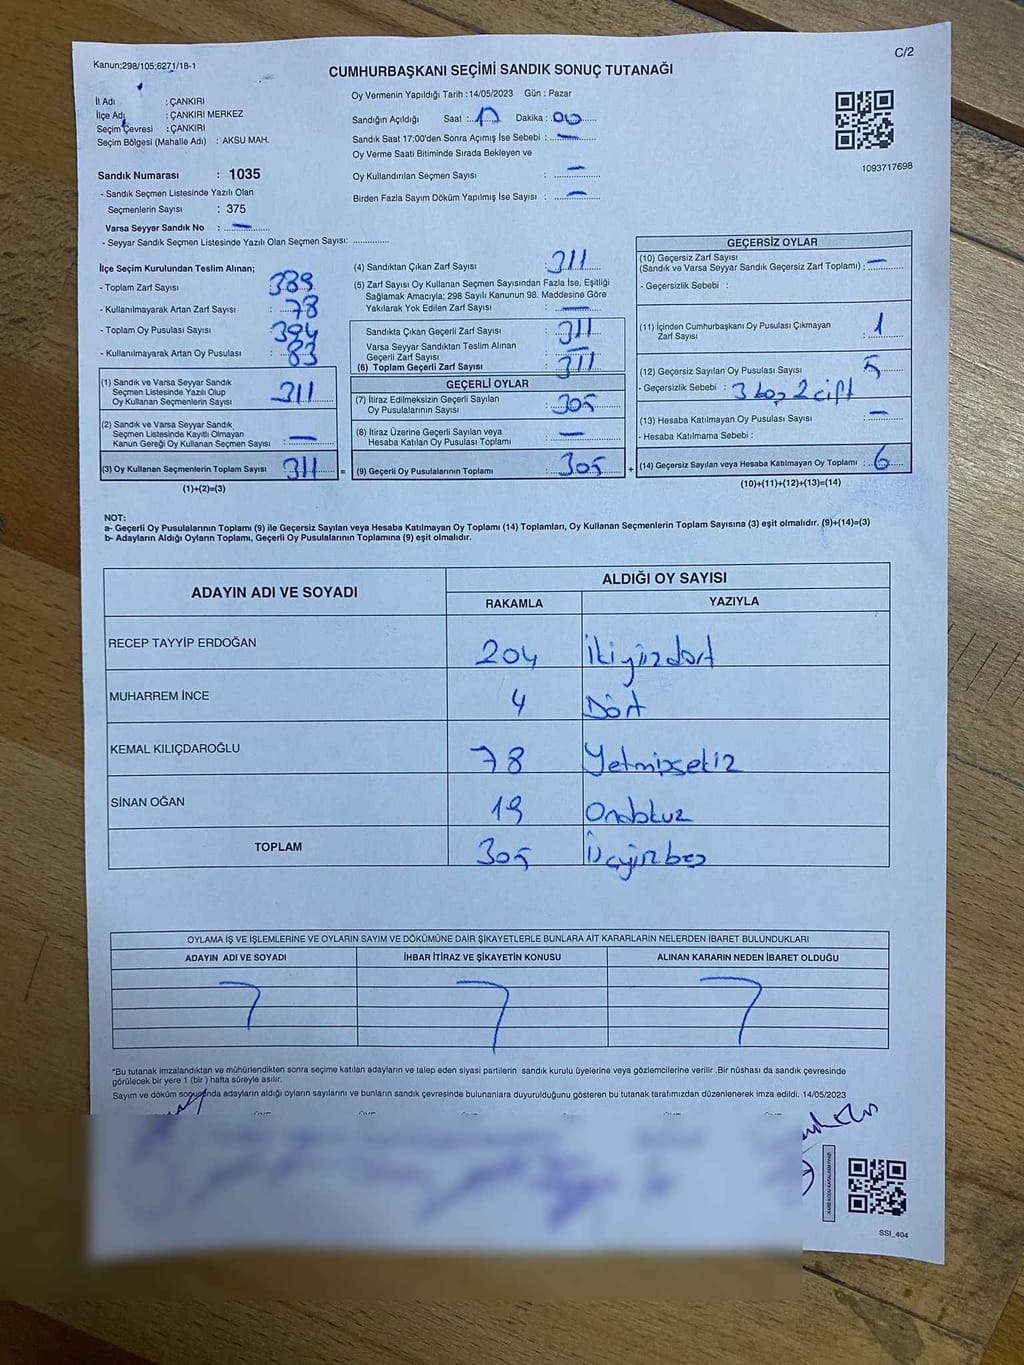 Kanun;298/105;6271/18-1
C/2
CUMHURBAŞKANI SEÇİMİ SANDIK SONUÇ TUTANAĞI
İl Adı : ÇANKIRI
İlçe Adı : ÇANKIRI MERKEZ
Seçim Çevresi : ÇANKIRI
Seçim Bölgesi (Mahalle Adı) : AKSU MAH.
Sandık Numarası : 1035
- Sandık Seçmen Listesinde Yazılı Olan
Seçmenlerin Sayısı : 375
Varsa Seyyar Sandık No : —
- Seyyar Sandık Seçmen Listesinde Yazılı Olan Seçmen Sayısı: ............
Oy Vermenin Yapıldığı Tarih :14/05/2023 Gün : Pazar
Sandığın Açıldığı Saat : 17 Dakika : 00
Sandık Saat 17:00'den Sonra Açımış İse Sebebi : —
Oy Verme Saati Bitiminde Sırada Bekleyen ve
Oy Kullandırılan Seçmen Sayısı : —
Birden Fazla Sayım Döküm Yapılmış İse Sayısı : —
1093717698
İlçe Seçim Kurulundan Teslim Alınan;
- Toplam Zarf Sayısı : 389
- Kullanılmayarak Artan Zarf Sayısı : 78
- Toplam Oy Pusulası Sayısı : 394
- Kullanılmayarak Artan Oy Pusulası : 83
(1) Sandık ve Varsa Seyyar Sandık
Seçmen Listesinde Yazılı Olup
Oy Kullanan Seçmenlerin Sayısı : 311
(2) Sandık ve Varsa Seyyar Sandık
Seçmen Listesinde Kayıtlı Olmayan
Kanun Gereği Oy Kullanan Seçmen Sayısı : —
(3) Oy Kullanan Seçmenlerin Toplam Sayısı : 311 =
(1)+(2)=(3)
(4) Sandıktan Çıkan Zarf Sayısı : 311
(5) Zarf Sayısı Oy Kullanan Seçmen Sayısından Fazla İse, Eşitliği
Sağlamak Amacıyla; 298 Sayılı Kanunun 98. Maddesine Göre
Yakılarak Yok Edilen Zarf Sayısı : —
Sandıkta Çıkan Geçerli Zarf Sayısı : 311
Varsa Seyyar Sandıktan Teslim Alınan
Geçerli Zarf Sayısı : —
(6) Toplam Geçerli Zarf Sayısı : 311
GEÇERLİ OYLAR
(7) İtiraz Edilmeksizin Geçerli Sayılan
Oy Pusulalarının Sayısı : 305
(8) İtiraz Üzerine Geçerli Sayılan veya
Hesaba Katılan Oy Pusulaları Toplamı : —
(9) Geçerli Oy Pusulalarının Toplamı : 305 +
GEÇERSİZ OYLAR
(10) Geçersiz Zarf Sayısı
(Sandık ve Varsa Seyyar Sandık Geçersiz Zarf Toplamı) : —
- Geçersizlik Sebebi :
(11) İçinden Cumhurbaşkanı Oy Pusulası Çıkmayan
Zarf Sayısı : 1
(12) Geçersiz Sayılan Oy Pusulası Sayısı 5
- Geçersizlik Sebebi : 3 boş 2 çift
(13) Hesaba Katılmayan Oy Pusulası Sayısı : —
- Hesaba Katılmama Sebebi :
(14) Geçersiz Sayılan veya Hesaba Katılmayan Oy Toplamı : 6
(10)+(11)+(12)+(13)=(14)
NOT:
a- Geçerli Oy Pusulalarının Toplamı (9) ile Geçersiz Sayılan veya Hesaba Katılmayan Oy Toplamı (14) Toplamları, Oy Kullanan Seçmenlerin Toplam Sayısına (3) eşit olmalıdır. (9)+(14)=(3)
b- Adayların Aldığı Oyların Toplamı, Geçerli Oy Pusulalarının Toplamına (9) eşit olmalıdır.
ADAYIN ADI VE SOYADI ALDIĞI OY SAYISI
RAKAMLA YAZIYLA
RECEP TAYYİP ERDOĞAN 204 İkiyüzdört
MUHARREM İNCE 4 Dört
KEMAL KILIÇDAROĞLU 78 Yetmişsekiz
SİNAN OĞAN 19 Ondokuz
TOPLAM 305 Üçyüzbeş
OYLAMA İŞ VE İŞLEMLERİNE VE OYLARIN SAYIM VE DÖKÜMÜNE DAİR ŞİKAYETLERLE BUNLARA AİT KARARLARIN NELERDEN İBARET BULUNDUKLARI
ADAYIN ADI VE SOYADI İHBAR İTİRAZ VE ŞİKAYETİN KONUSU ALINAN KARARIN NEDEN İBARET OLDUĞU
*Bu tutanak imzalandıktan ve mühürlendikten sonra seçime katılan adayların ve talep eden siyasi partilerin sandık kurulu üyelerine veya gözlemcilerine verilir .Bir nüshası da sandık çevresinde
görülecek bir yere 1 (bir ) hafta süreyle asılır.
Sayım ve döküm sonucunda adayların aldığı oyların sayılarını ve bunların sandık çevresinde bulunanlara duyurulduğunu gösteren bu tutanak tarafımızdan düzenlenerek imza edildi. 14/05/2023
SSI_404